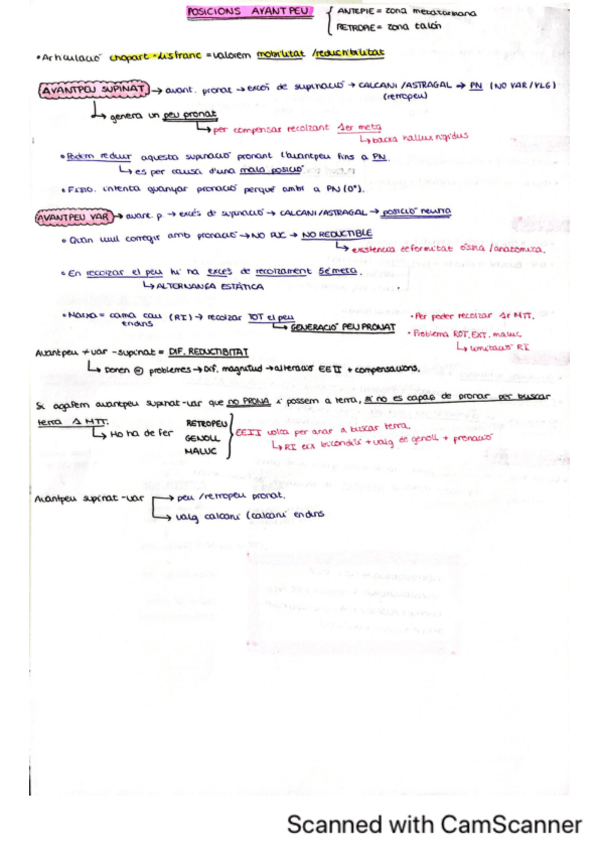 POSICIONS AVANTPEU { ANTEPIE = zona metatarsiana
RETROPIE = zona talón
• Articulació chopart - lisfranc = valorem mobilitat / reductibilitat
AVANTPEU SUPINAT → avant. pronat → excés de supinació → CALCANI / ASTRAGAL → PN (NO VAR / VLG)
(retropeu)
↳ genera un peu pronat
↳ per compensar recolzant 1er meta
↳ hallux rigidus
• Podem reduir aquesta supinació pronant l'avantpeu fins a PN
↳ es per causa d'una mala posició
• FISIO. intenta guanyar pronació perquè arribi a PN (0°).
AVANTPEU VAR → avant. p → excés de supinació → CALCANI / ASTRAGAL → posició neutra
• Quan vull corregir amb pronació → NO PUC → NO REDUCTIBLE
↳ existencia deformitat òssia / anatomica.
• En recolzar el peu hi ha excés de recolzament 5è meta.
↳ ALTERNANÇA ESTÀTICA
• Marxa = cama cau (RI) → recolzar TOT el peu
endins
↳ GENERACIÓ PEU PRONAT
• Per poder recolzar 1r MTT.
• Problema ROT. EXT. maluc.
↳ limitació RI
Avantpeu ≠ var - supinat = DIF. REDUCTIBITAT
↳ Donen ⊖ problemes → Dif. magnitud → alteració EEII + compensacions.
Si agafem avantpeu supinat - var que NO PRONA i possem a terra, si no es capaç de pronar per buscar
terra 1 MTT.
↳ Ho ha de fer
RETROPEU
GENOLL
MALUC
} EEII volta per anar a buscar terra.
↳ RI eix bicondili + valg de genoll + pronació
Avantpeu supinat - var → peu / retropeu pronat.
↳ valg calcani (calcani endins
Scanned with CamScanner